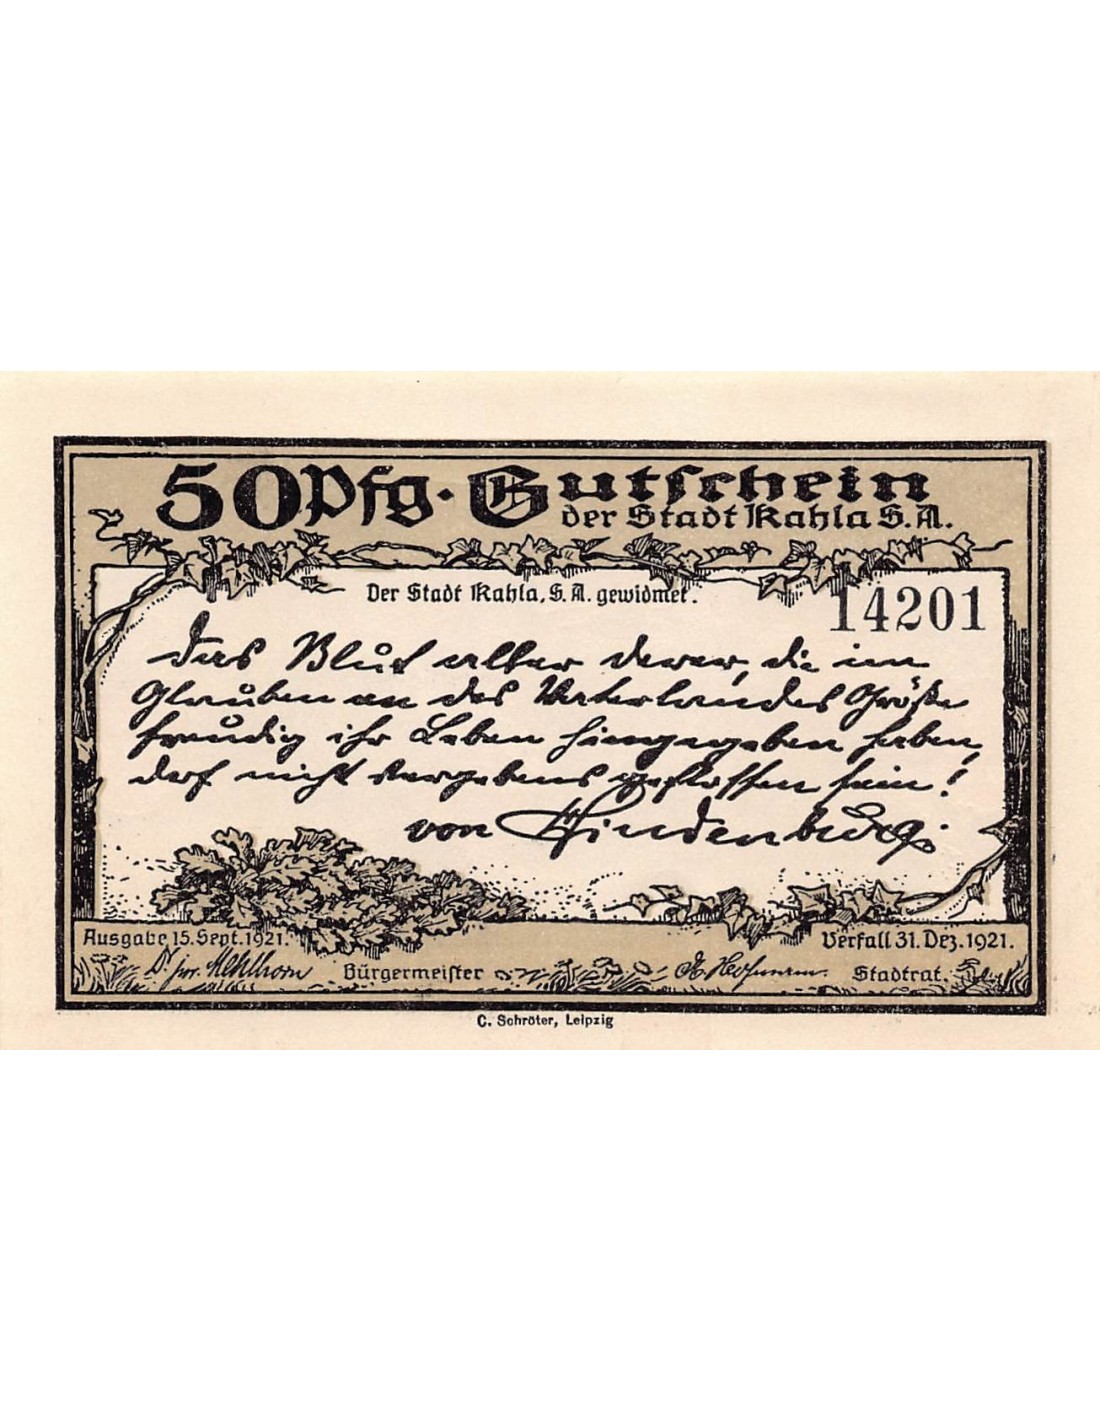 50 Pfg. Gutschein
der Stadt Kahla S.A.
Der Stadt Kahla, S. A. gewidmet.
14201
Das Blut aller derer, die im
Glauben an des Vaterlandes Größe
freudig ihr Leben hingegeben haben,
darf nicht vergebens geflossen sein!
von Hindenburg.
Ausgabe 15. Sept. 1921.
Verfall 31. Dez. 1921.
Dr. jur. Mehlhorn Bürgermeister
Stadtrat.
C. Schröter, Leipzig